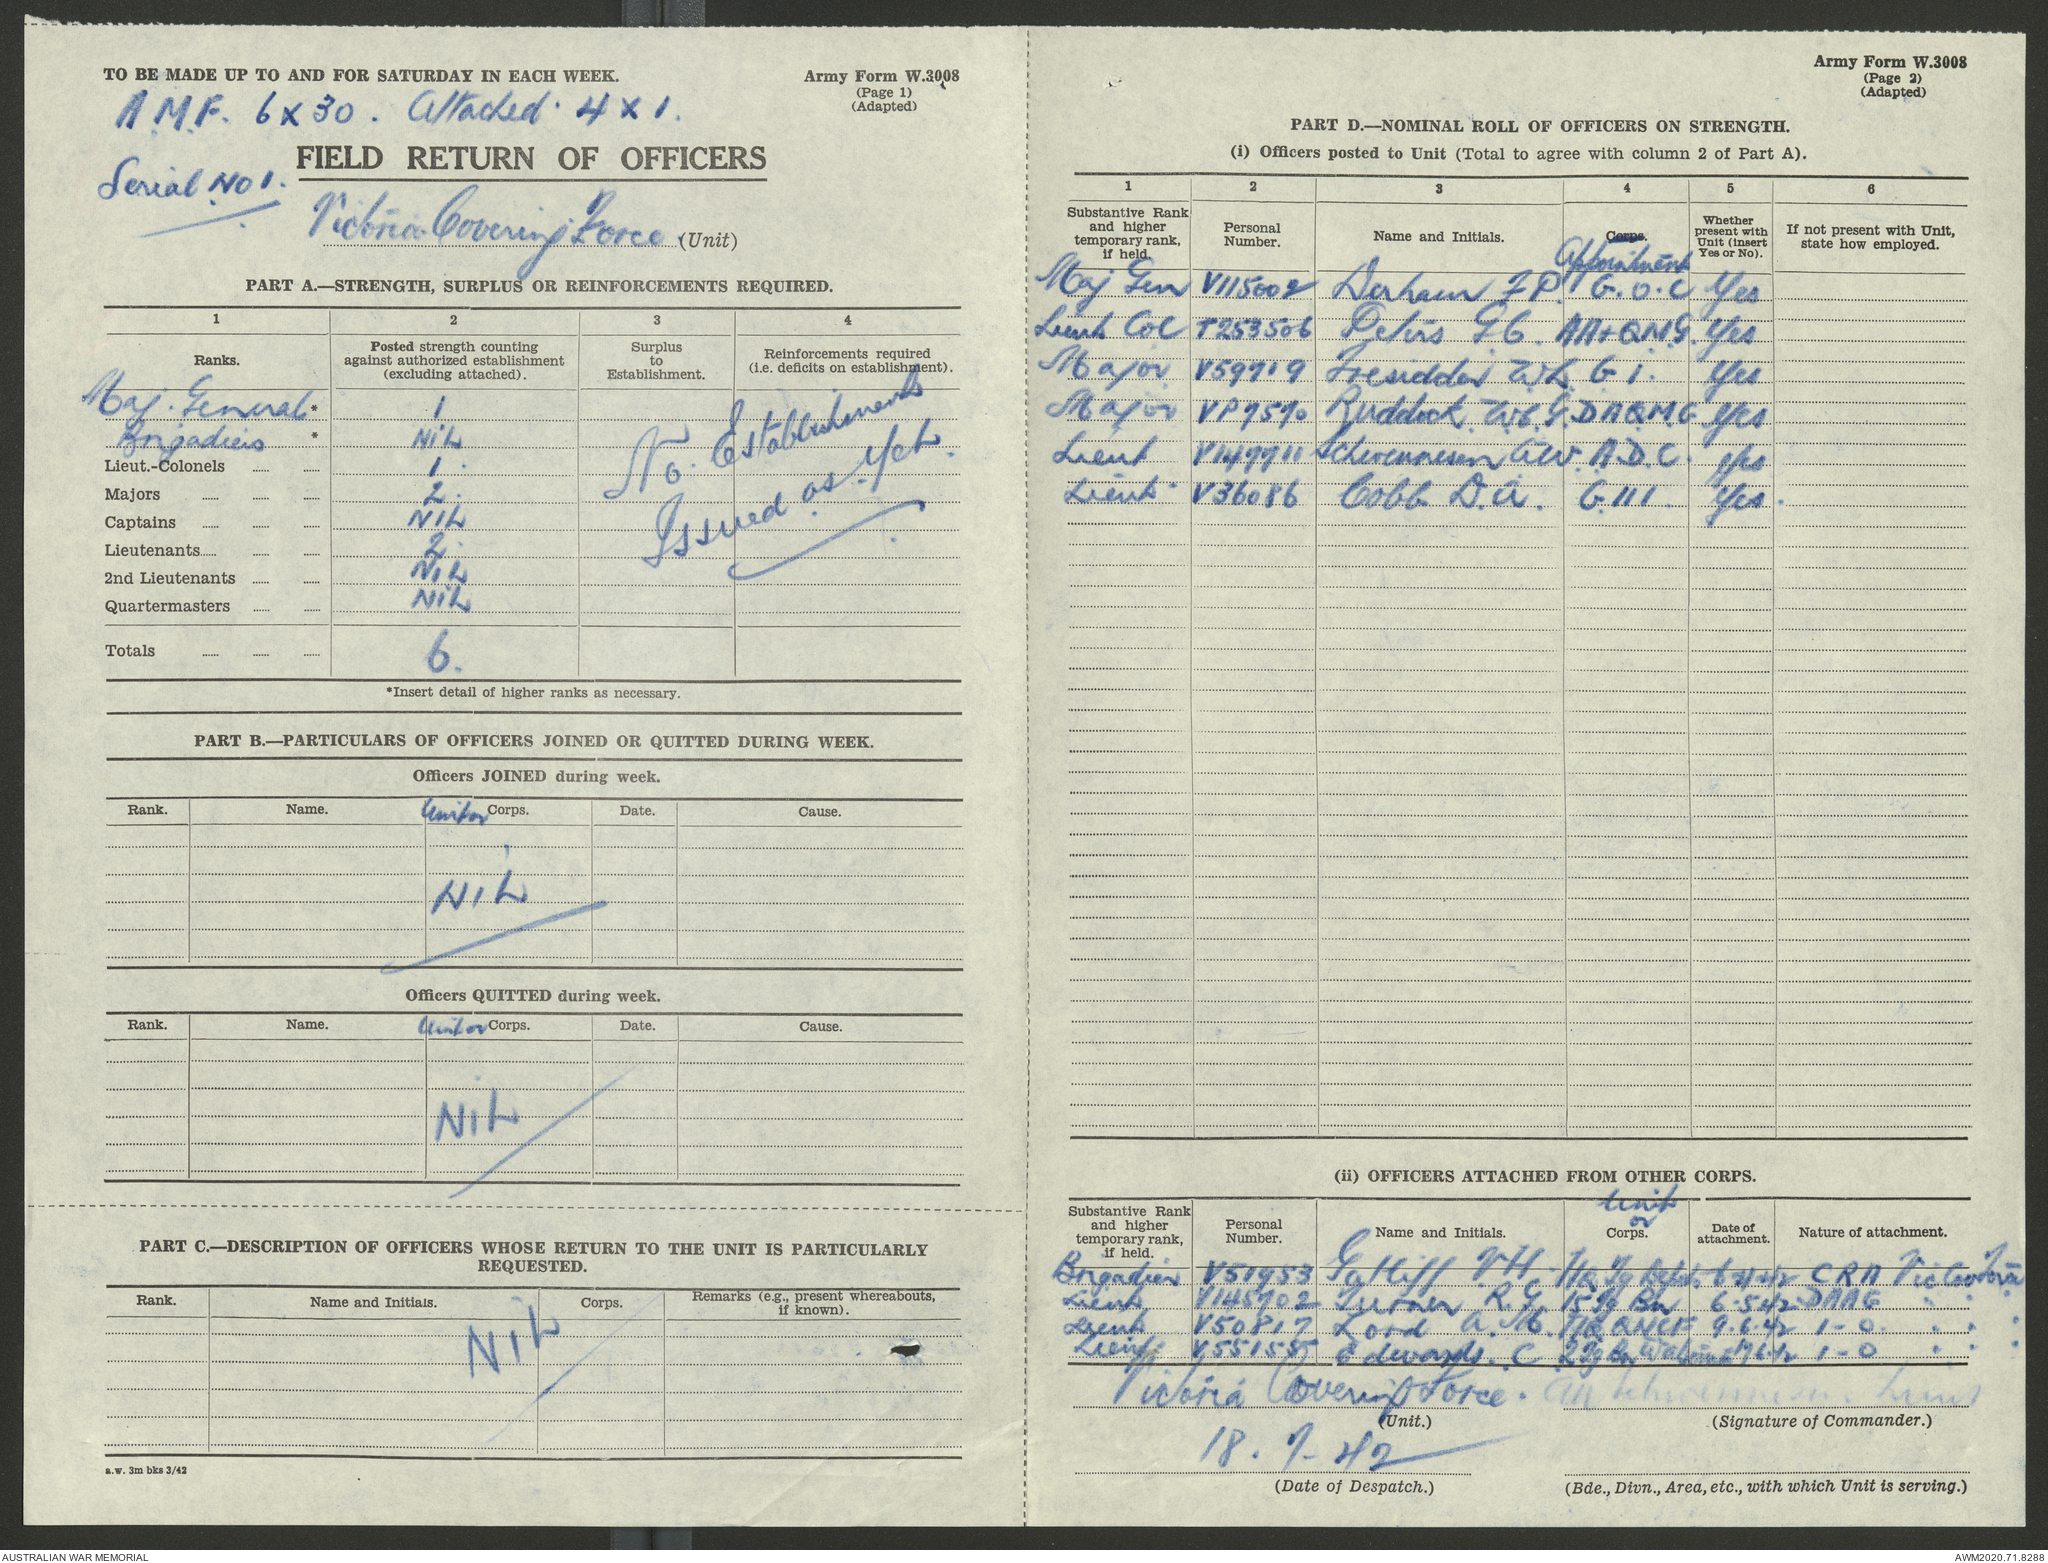 TO BE MADE UP TO AND FOR SATURDAY IN EACH WEEK.
Army Form W.3008
(Page 1)
(Adapted)
A.M.F. 6 x 30. Attached. 4 x 1.
FIELD RETURN OF OFFICERS
Serial No 1.
Victoria Covering Force (Unit)
PART A.—STRENGTH, SURPLUS OR REINFORCEMENTS REQUIRED.
1 2 3 4
Ranks. Posted strength counting against authorized establishment (excluding attached). Surplus to Establishment. Reinforcements required (i.e. deficits on establishment).
Maj. General * 1
Brigadiers * NiL
Lieut.-Colonels 1.
Majors 2.
Captains NiL
Lieutenants 2.
2nd Lieutenants NiL
Quartermasters NiL
No Establishments
Issued as yet.
Totals 6.
*Insert detail of higher ranks as necessary.
PART B.—PARTICULARS OF OFFICERS JOINED OR QUITTED DURING WEEK.
Officers JOINED during week.
Rank. Name. Unit or Corps. Date. Cause.
NiL
Officers QUITTED during week.
Rank. Name. Unit or Corps. Date. Cause.
NiL
PART C.—DESCRIPTION OF OFFICERS WHOSE RETURN TO THE UNIT IS PARTICULARLY
REQUESTED.
Rank. Name and Initials. Corps. Remarks (e.g., present whereabouts, if known).
NiL
a.w. 3m bks 3/42
Army Form W.3008
(Page 2)
(Adapted)
PART D.—NOMINAL ROLL OF OFFICERS ON STRENGTH.
(i) Officers posted to Unit (Total to agree with column 2 of Part A).
1 2 3 4 5 6
Substantive Rank and higher temporary rank, if held. Personal Number. Name and Initials. Corps. Appointment Whether present with Unit (insert Yes or No). If not present with Unit, state how employed.
Maj Gen V115002 Derham F P. G.O.C Yes
Lieut Col T253506 Peters G C. AA+QMG. Yes
Major V59719 Tresidder W L. G 1. Yes
Major VP7570 Ruddock DAQMG Yes
Lieut V149911 Schwennesen A W. A.D.C. Yes
Lieut. V36086 Cobb D.A. G.111. Yes.
(ii) OFFICERS ATTACHED FROM OTHER CORPS.
Substantive Rank and higher temporary rank, if held. Personal Number. Name and Initials. Unit or Corps. Date of attachment. Nature of attachment.
Brigadier V51953 Gatliff V H. HQ CRA Vic Cov Force
Lieut V145702 Turner R.G. 15 Tg Bn 6.5.42 DAAG " " "
Lieut V50817 Lord A. M. 9.6.42 1-0. " " "
Lieut V55155 Edwards. C 1-0 " " "
Victoria Covering Force. AW Schwennesen. Lieut
(Unit.) (Signature of Commander.)
18.7-42
(Date of Despatch.) (Bde., Divn., Area, etc., with which Unit is serving.)
AUSTRALIAN WAR MEMORIAL
AWM2020.71.8288